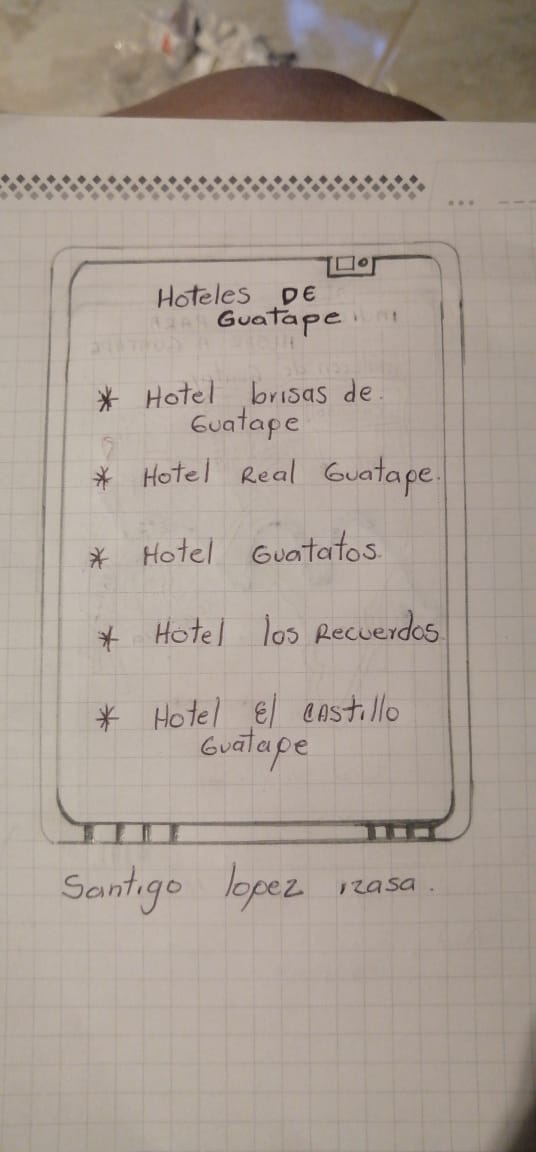 Hoteles DE
Guatape
* Hotel brisas de
Guatape
* Hotel Real Guatape.
* Hotel Guatatos.
* Hotel los Recuerdos
* Hotel El CAStillo
Guatape
Santigo lopez izasa.